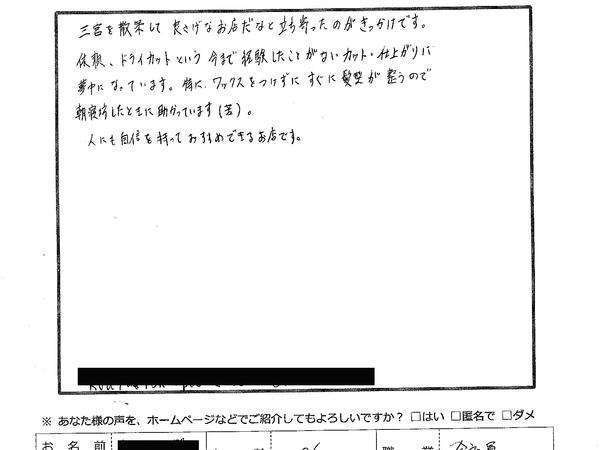 三宮を散策して 良さげなお店だなと立ち寄ったのがきっかけです。
以来、ドライカットという 今まで経験したことがないカット・仕上がりに
夢中になっています。特に、ワックスをつけずに すぐに髪型が 整うので
朝寝坊したときに助かっています(苦)。
人にも自信を持っておすすめできるお店です。
※ あなた様の声を、ホームページなどでご紹介してもよろしいですか？ □はい □匿名で □ダメ
お 名 前